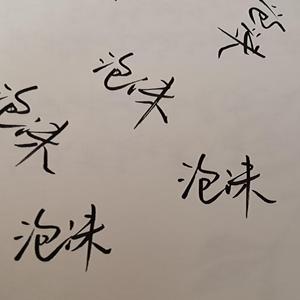 泡沫
泡沫
泡沫
泡沫
泡沫